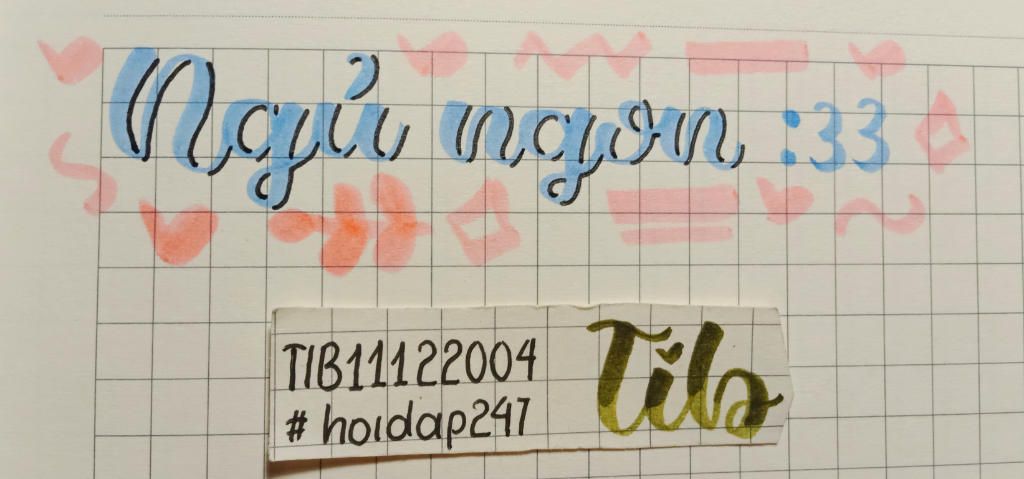 Ngủ ngon :33
TIB11122004
#hoidap247
Tib